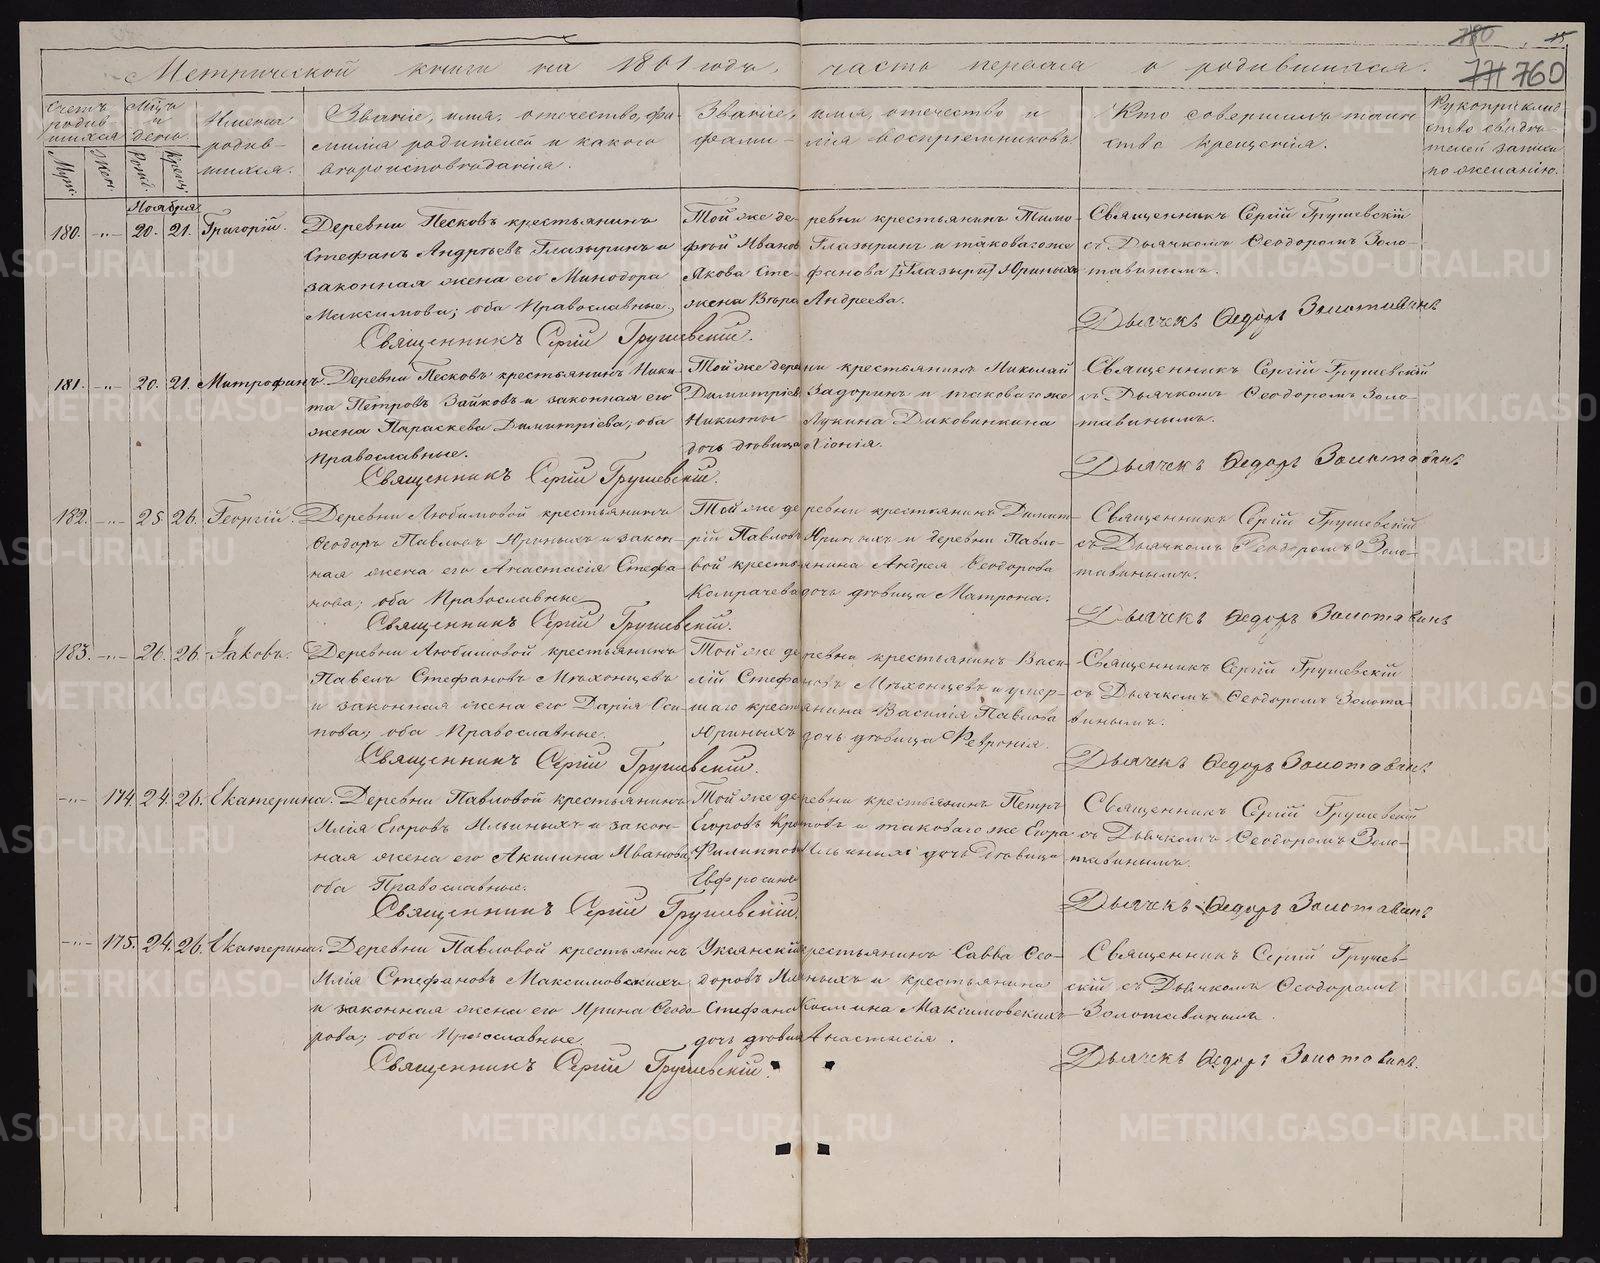 780 15
Метрической книги на 1861 годъ, часть первая о родившихся.
771 760
Счетъ родив-шихся
Мѣсяцъ и день.
Имена родив-шихся.
Званіе, имя, отечество, фа-милія родителей и какого вѣроисповѣданія.
Званіе, имя, отечество и фами-лія воспріемниковъ
Кто совершалъ таин-ство крещенія.
Рукоприклад-ство свидѣ-телей записи по желанію.
Муж. Жен. Рожд. Крещ.
Ноября
180. -„- 20. 21. Григорій.
Деревни Песковъ крестьянинъ
Стефанъ Андреевъ Глазыринъ и
законная жена его Минодора
Максимова; оба Православные.
Той же деревни крестьянинъ Тимо-
фей Ивановъ Глазыринъ и таковаго же
Якова Стефанова Юриныхъ
жена Вѣра Андреева.
Священникъ Сергій Грушевскій
съ Дьячкомъ Ѳеодоромъ Золо-
тавинымъ.
Священникъ Сергій Грушевскій.
Дьячекъ Ѳедоръ Золотавинъ
181. -„- 20. 21. Митрофанъ.
Деревни Песковъ крестьянинъ Ники-
та Петровъ Зайковъ и законная его
жена Параскева Димитріева; оба
Православные.
Той же деревни крестьянинъ Николай
Димитріевъ Задоринъ и таковаго же
Никиты Лукина Диковинкина
дочь дѣвица Хіонія.
Священникъ Сергій Грушевскій
съ Дьячкомъ Ѳеодоромъ Золо-
тавинымъ.
Священникъ Сергій Грушевскій.
Дьячекъ Ѳедоръ Золотавинъ
182. -„- 25. 26. Георгій.
Деревни Любимовой крестьянинъ
Ѳеодоръ Павловъ Юриныхъ и закон-
ная жена его Анастасія Стефа-
нова; оба Православные
Той же деревни крестьянинъ Димит-
рій Павловъ Юриныхъ и деревни Павло-
вой крестьянина Андрея Ѳеодорова
дочь дѣвица Матрона.
Священникъ Сергій Грушевскій
съ Дьячкомъ Ѳеодоромъ Золо-
тавинымъ.
Священникъ Сергій Грушевскій.
Дьячекъ Ѳедоръ Золотавинъ
183. -„- 26. 26. Іаковъ.
Деревни Любимовой крестьянинъ
Павелъ Стефановъ Мѣхонцевъ
и законная жена его Дарія Оси-
пова; оба Православные.
Той же деревни крестьянинъ Васи-
лій Стефановъ Мѣхонцевъ и умер-
шаго крестьянина Василія Павлова
Юриныхъ дочь дѣвица Ѳевронія.
Священникъ Сергій Грушевскій
съ Дьячкомъ Ѳеодоромъ Золота-
винымъ.
Священникъ Сергій Грушевскій.
Дьячекъ Ѳедоръ Золотавинъ
-„- 174. 24. 26. Екатерина.
Деревни Павловой крестьянинъ
Илія Егоровъ Ильиныхъ и закон-
ная жена его Акилина Иванова,
оба Православные.
Той же деревни крестьянинъ Петръ
Егоровъ и таковаго же Егора
Филиппова Ильиныхъ дочь дѣвица
Евфросинія
Священникъ Сергій Грушевскій
съ Дьячкомъ Ѳеодоромъ Золо-
тавинымъ.
Священникъ Сергій Грушевскій.
Дьячекъ Ѳедоръ Золотавинъ
-„- 175. 24. 26. Екатерина.
Деревни Павловой крестьянинъ
Илія Стефановъ Максимовскихъ
и законная жена его Ирина Ѳеодо-
рова; оба Православные.
Уксянскій крестьянинъ Савва Ѳео-
доровъ Ильиныхъ и крестьянина
Стефана Космина Максимовскихъ
дочь дѣвица Анастасія.
Священникъ Сергій Грушев-
скій съ Дьячкомъ Ѳеодоромъ
Золотавинымъ.
Священникъ Сергій Грушевскій.
Дьячекъ Ѳедоръ Золотавинъ.
METRIKI.GASO-URAL.RU